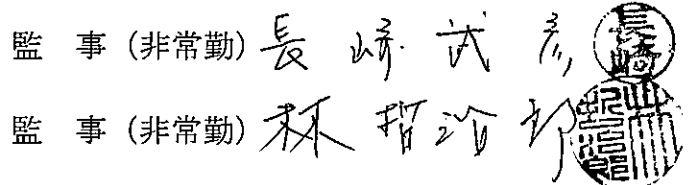 監 事 (非常勤) 長崎 武彦
監 事 (非常勤) 林 哲治郎